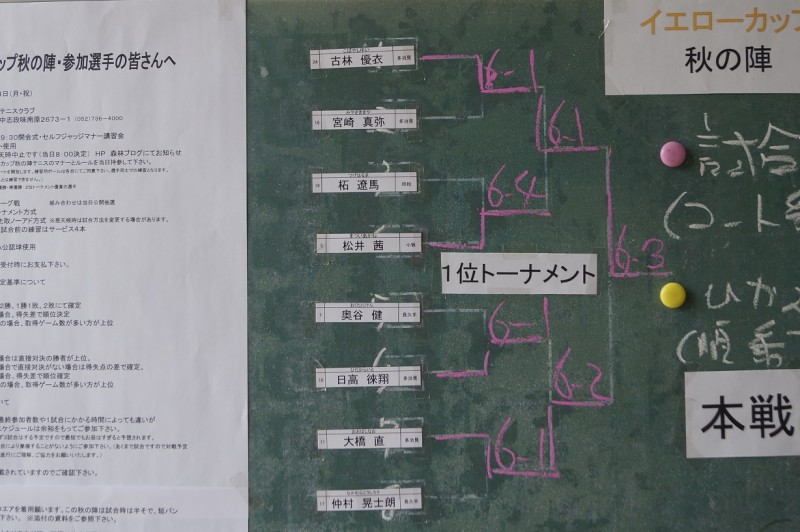 ップ秋の陣・参加選手の皆さんへ
日(月・祝)
テニスクラブ
中志段味南原2673-1 (052)736-4000
9:30開会式・セルフジャッジマナー講習会
ト使用
天時中止です(当日8:00決定) HP 森林ブログにてお知らせ
カップ秋の陣テニスのマナーとルールを当日持参して下さい。
ーグ戦 組み合わせは当日公開抽選
ナメント方式
先取ノーアド方式 ※悪天候時は試合方法を変更する場合があります。
試合前の練習はサービス4本
公認球使用
受付時にお支払下さい。
定基準について
2勝、1勝1敗、2敗にて確定
場合、得失差で順位決定
の場合、取得ゲーム数が多い方が上位
場合は直接対決の勝者が上位。
場合で直接対決がない場合は得失点の差で確定。
場合、得失差で順位確定
の場合、取得ゲーム数が多い方が上位
いて
最終参加者数や1試合にかかる時間によっても違いが
スケジュールは余裕をもってご参加下さい。
載されていますのでご確認下さい。
ウエアを着用願います。この秋の陣は試合時は半そで、短パン
下さい。 ※添付の資料をご参照下さい。
古林 優衣
宮崎 真弥
柘 遼馬
松井 茜
奥谷 健
日高 徠翔
大橋 直
仲村 晃士朗
6-1
6-1
6-4
6-3
1位トーナメント
6-1
6-2
6-1
イエローカップ
秋の陣
試合
(コート
ひか
(順番
本戦